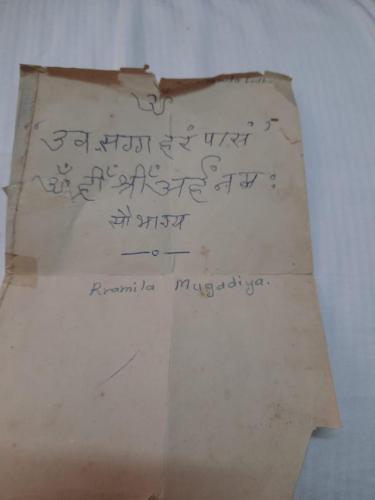 ॐ
"उव सग्ग हरं पासं"
ॐ ह्रीँ श्रीँ अर्हं नमः
सौभाग्य
—०—
Pramila Mugadiya.